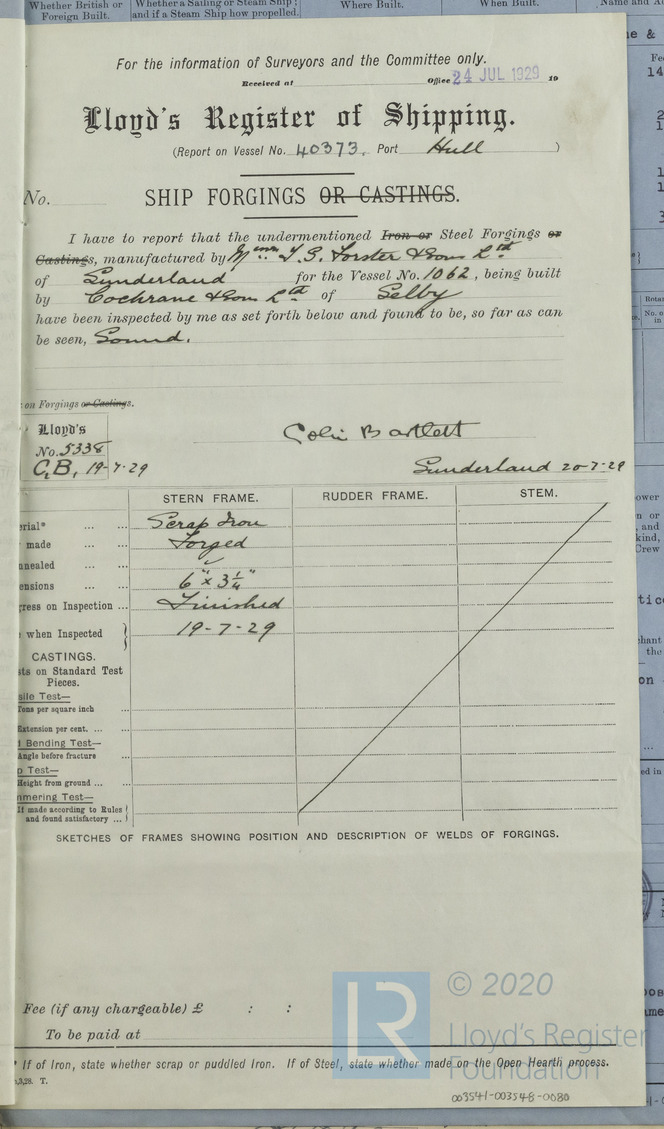 Whether British or Foreign Built.
Whether a Sailing or Steam Ship; and if a Steam Ship how propelled.
Where Built.
When Built.
For the information of Surveyors and the Committee only.
Received at Office 24 JUL 1929 19
Lloyd's Register of Shipping.
(Report on Vessel No. 40373. Port Hull )
No. SHIP FORGINGS OR CASTINGS.
I have to report that the undermentioned Iron or Steel Forgings or
Castings, manufactured by Messrs. T. G. Forster & Sons Ltd
of Sunderland for the Vessel No. 1062, being built
by Cochrane & Sons Ltd of Selby
have been inspected by me as set forth below and found to be, so far as can
be seen, Sound.
on Forgings or Castings.
Lloyd's
No. 5338
C.B, 19-7-29
Colin Bartlett
Sunderland 20-7-29
STERN FRAME. RUDDER FRAME. STEM.
erial* ... ... Scrap Iron
made ... ... Forged
nealed ... ... ✓
ensions ... ... 6" x 3 1/4"
gress on Inspection ... Finished
when Inspected } 19-7-29
CASTINGS.
sts on Standard Test
Pieces.
sile Test—
Tons per square inch ...
Extension per cent. ... ...
d Bending Test—
Angle before fracture ...
p Test—
Height from ground ... ...
mmering Test—
If made according to Rules
and found satisfactory ... }
SKETCHES OF FRAMES SHOWING POSITION AND DESCRIPTION OF WELDS OF FORGINGS.
Fee (if any chargeable) £ : :
To be paid at
* If of Iron, state whether scrap or puddled Iron. If of Steel, state whether made on the Open Hearth process.
3,28. T.
LR © 2020
Lloyd's Register
Foundation
003541-003548-0080